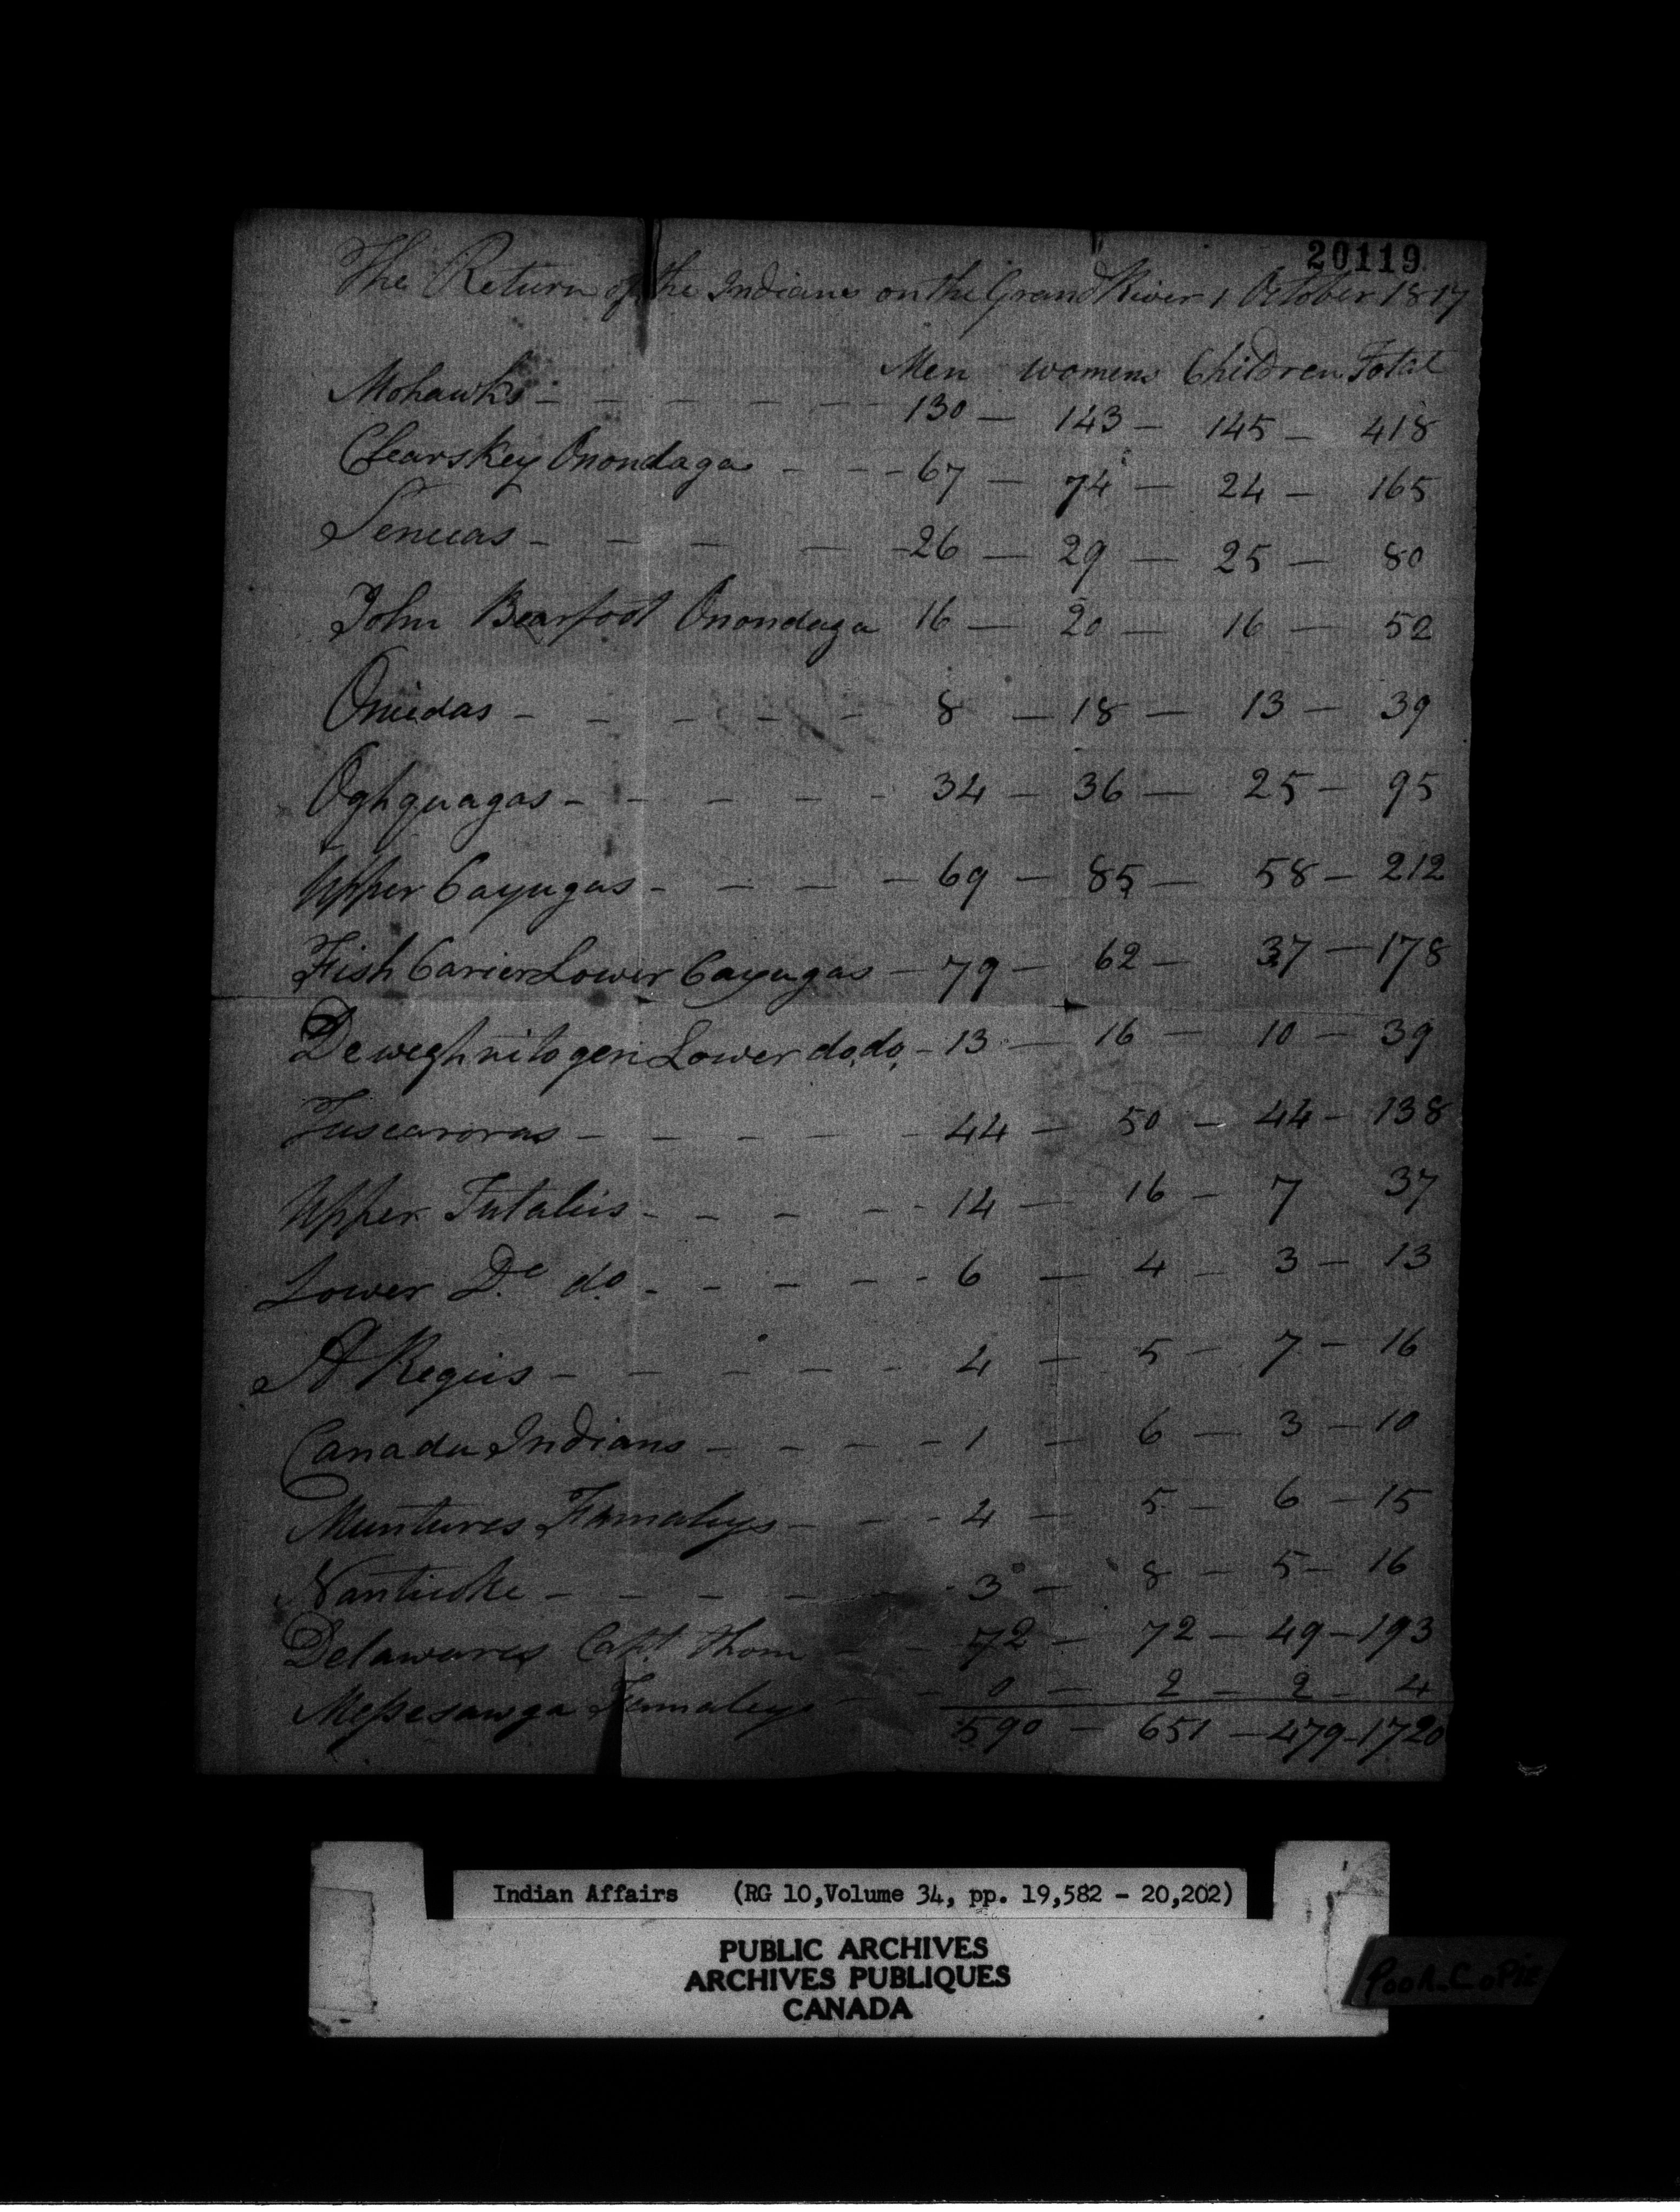 20119
The Return of the Indians on the Grand River 1 October 1817
Men womens Children Total
Mohawks - - - - - - 130 — 143 — 145 — 418
Clearskey Onondaga - - - 67 — 74 — 24 — 165
Senecas - - - - - 26 — 29 — 25 — 80
John Bearfoot Onondaga 16 — 20 — 16 — 52
Oniedas - - - - - 8 — 18 — 13 — 39
Oghquagas - - - - - 34 — 36 — 25 — 95
Upper Cayugas - - - - 69 — 85 — 58 — 212
Fish Carier Lower Cayugas — 79 — 62 — 37 — 178
Deweghnitogen Lower do, do, - 13 — 16 — 10 — 39
Tuscaroras - - - - - 44 — 50 — 44 — 138
Upper Tutalies - - - - - 14 — 16 — 7 37
Lower Do do - - - - - 6 — 4 — 3 — 13
St Regiis - - - - - 4 — 5 — 7 — 16
Canada Indians - - - - 1 — 6 — 3 — 10
Muntures Famaleys - - - 4 — 5 — 6 — 15
Nanticoke - - - - - 3 — 8 — 5 — 16
Delawares Capt. Thom - - 72 — 72 — 49 — 193
Messesawga Famaleys - - 0 — 2 — 2 — 4
590 — 651 — 479 — 1720
Indian Affairs (RG 10, Volume 34, pp. 19,582 - 20,202)
PUBLIC ARCHIVES
ARCHIVES PUBLIQUES
CANADA
Poor Copie